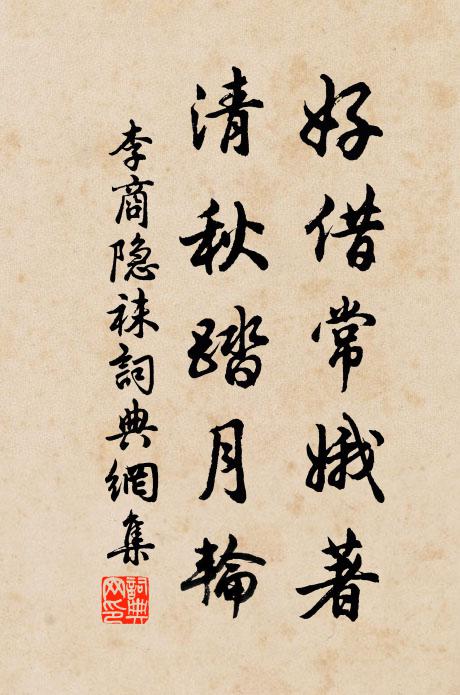 好借常娥著
清秋踏月輪
李商隐袜詞典網集
詞典網印